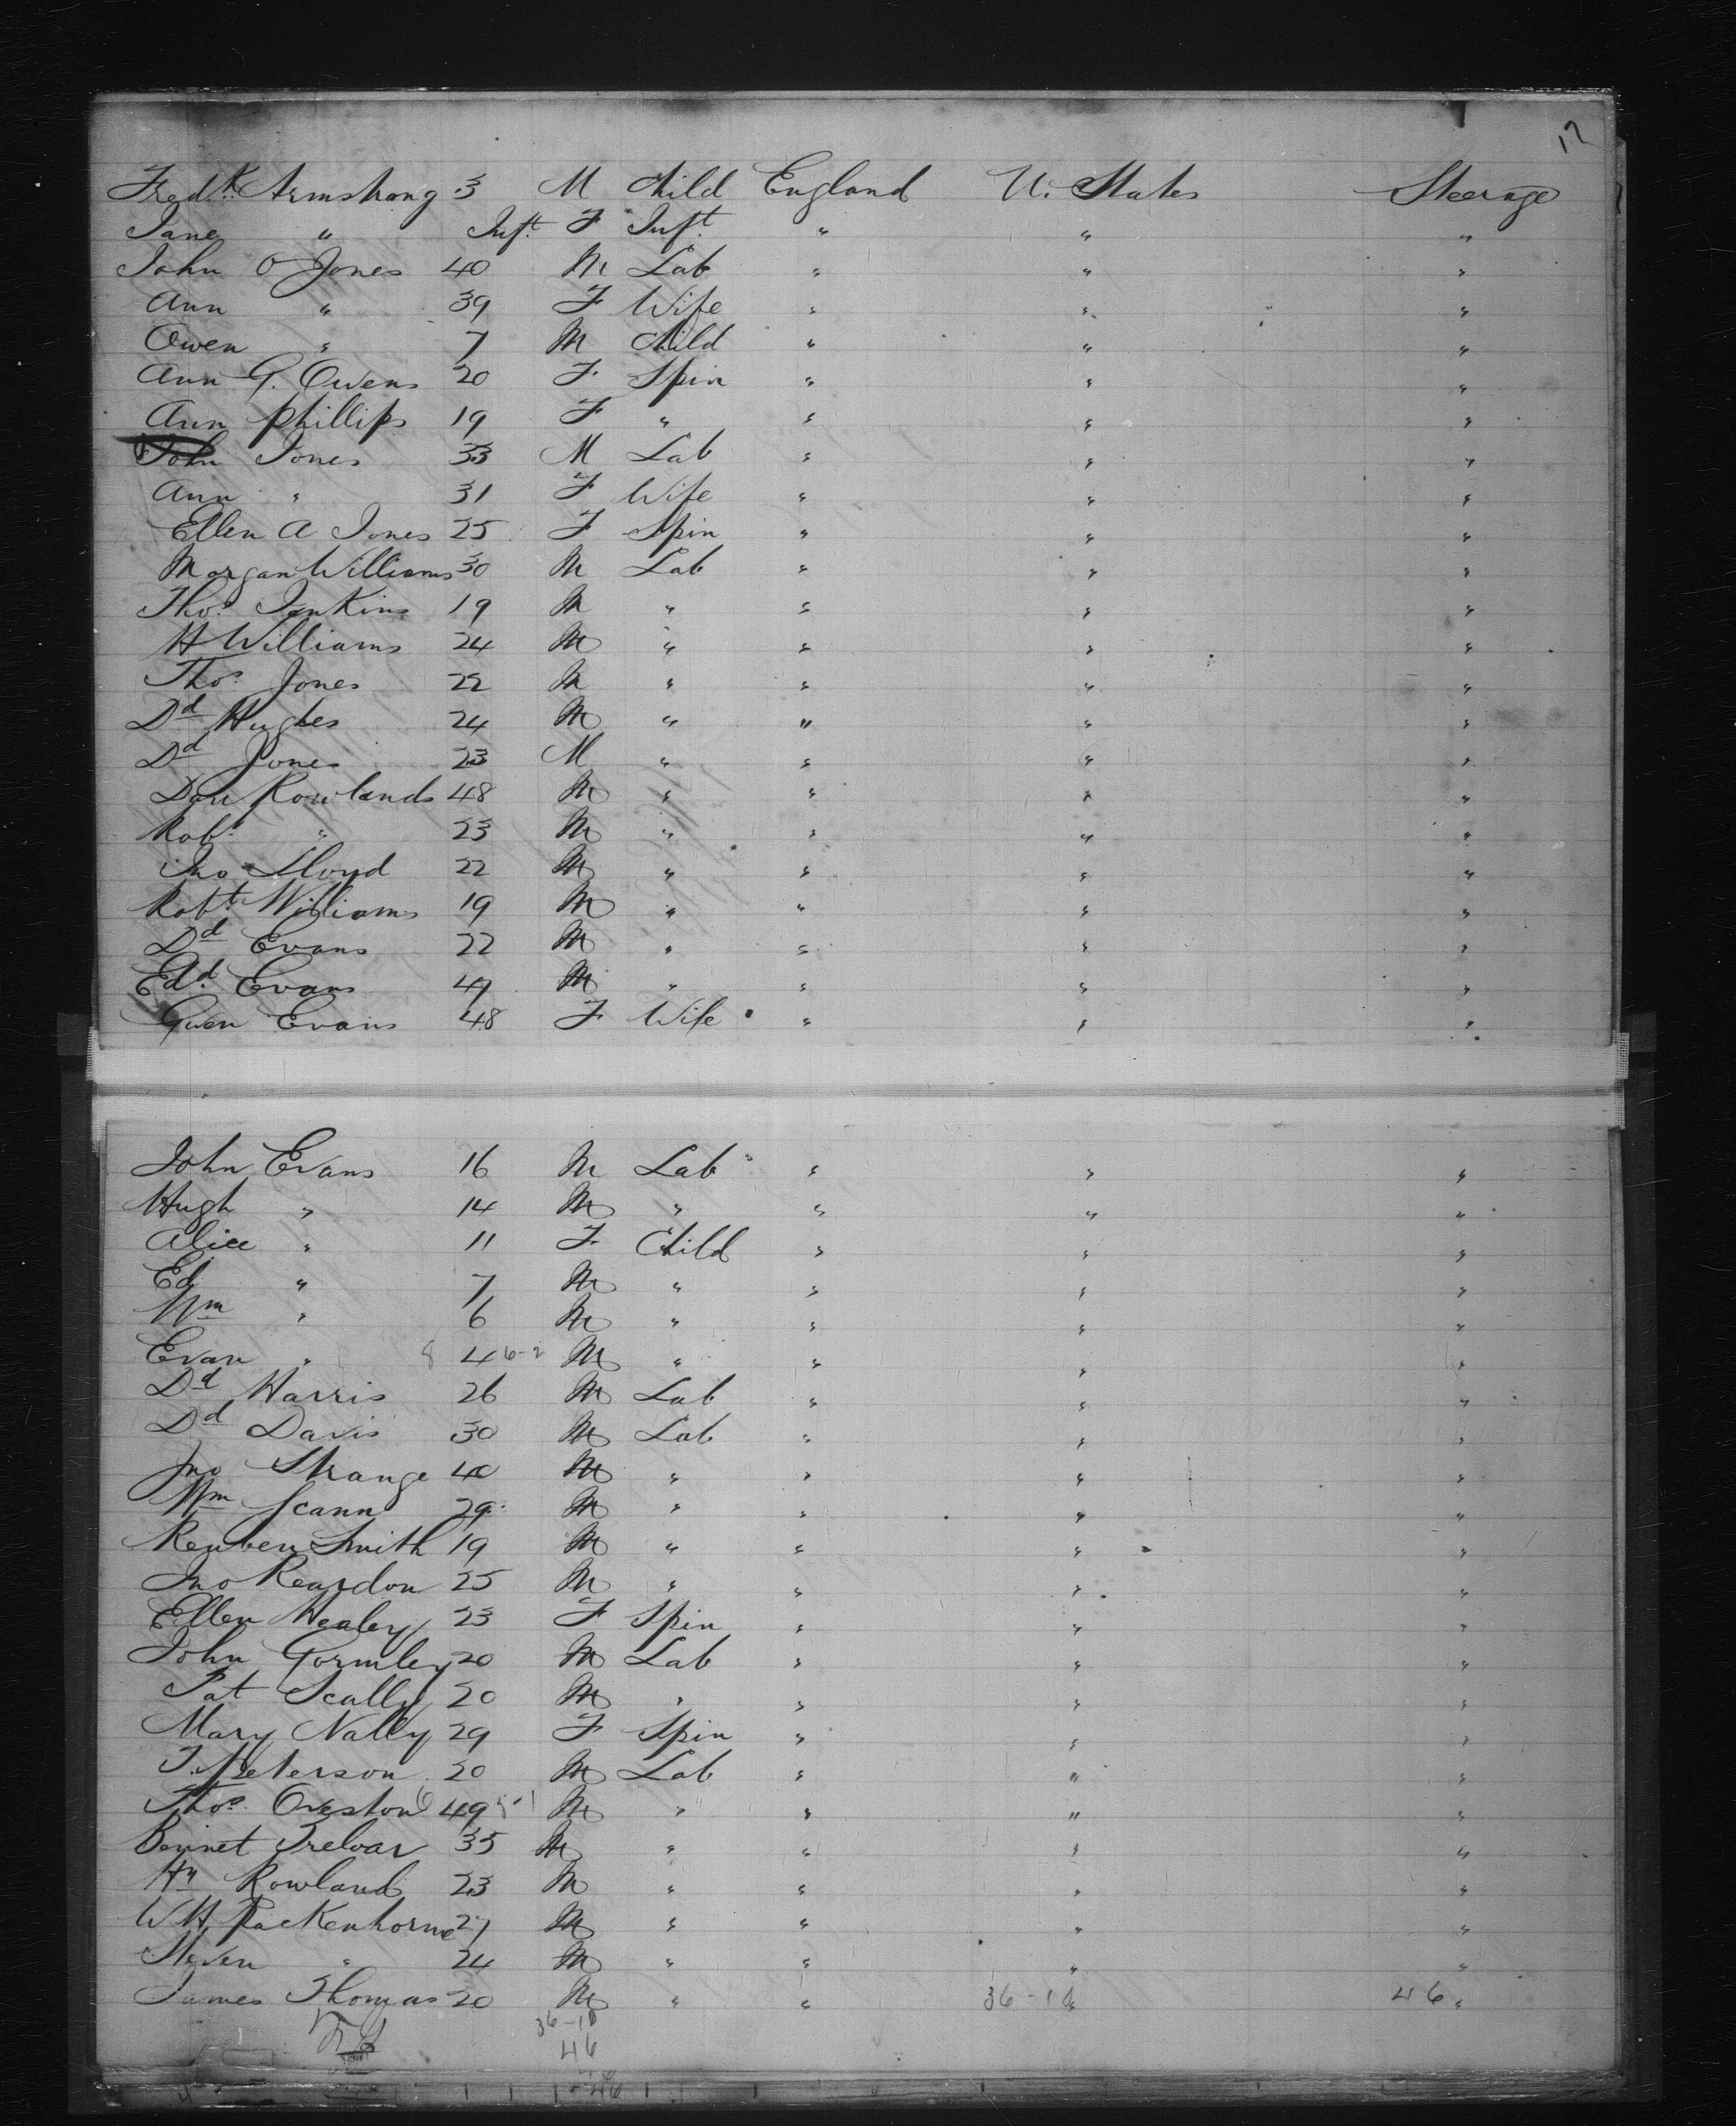 17
Fredk. Armstrong 3 M Child England U. States Steerage
Jane " Inft. F Inft. " " "
John O Jones 40 M Lab " " "
Ann " 39 F Wife " " "
Owen " 7 M Child " " "
Ann G. Owens 20 F Spin " " "
Ann Phillips 19 F " " " "
John Jones 33 M Lab " " "
Ann " 31 F Wife " " "
Ellen A Jones 25 F Spin " " "
Morgan Williams 30 M Lab " " "
Thos. Jenkins 19 M " " " "
H Williams 24 M " " " "
Thos. Jones 22 M " " " "
Dd Hughes 24 M " " " "
Dd Jones 23 M " " " "
Danl Rowlands 48 M " " " "
Robt " 23 M " " " "
Jno Lloyd 22 M " " " "
Robt. Williams 19 M " " " "
Dd Evans 22 M " " " "
Edd. Evans 49 M " " " "
Gwen Evans 48 F Wife " " "
John Evans 16 M Lab " " "
Hugh " 14 M " " " "
Alice " 11 F Child " " "
Ed " 7 M " " " "
Wm " 6 M " " " "
Evan " 8 4 6-2 M " " " "
Dd Harris 26 M Lab " " "
Dd Davis 30 M Lab " " "
Jno Strange 40 M " " " "
Wm Scann 29 M " " " "
Reuben Smith 19 M " " " "
Jno Reardon 25 M " " " "
Ellen Healey 23 F Spin " " "
John Gormley 20 M Lab " " "
Pat Scally 20 M " " " "
Mary Nally 29 F Spin " " "
T. Peterson 20 M Lab " " "
Thos. Oveston 6 49 5-1 M " " " "
Bennet Trelvar 35 M " " " "
Hy Rowland 23 M " " " "
W H Packenhorne 27 M " " " "
Steven " 24 M " " " "
James Thomas 20 M " " 36-10 " 46 "
36-10
46
46